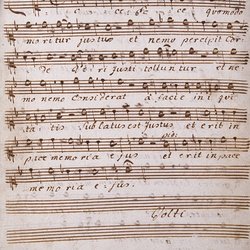 Ecce quomodo
moritur justus et nemo percipit Cor
De Viri justi tolluntur et ne
mo nemo considerat a facie ini qui
ta tis Sublatus est Justus et erit in
pace memoria ejus et erit in pace
memoria e jus.
Volti